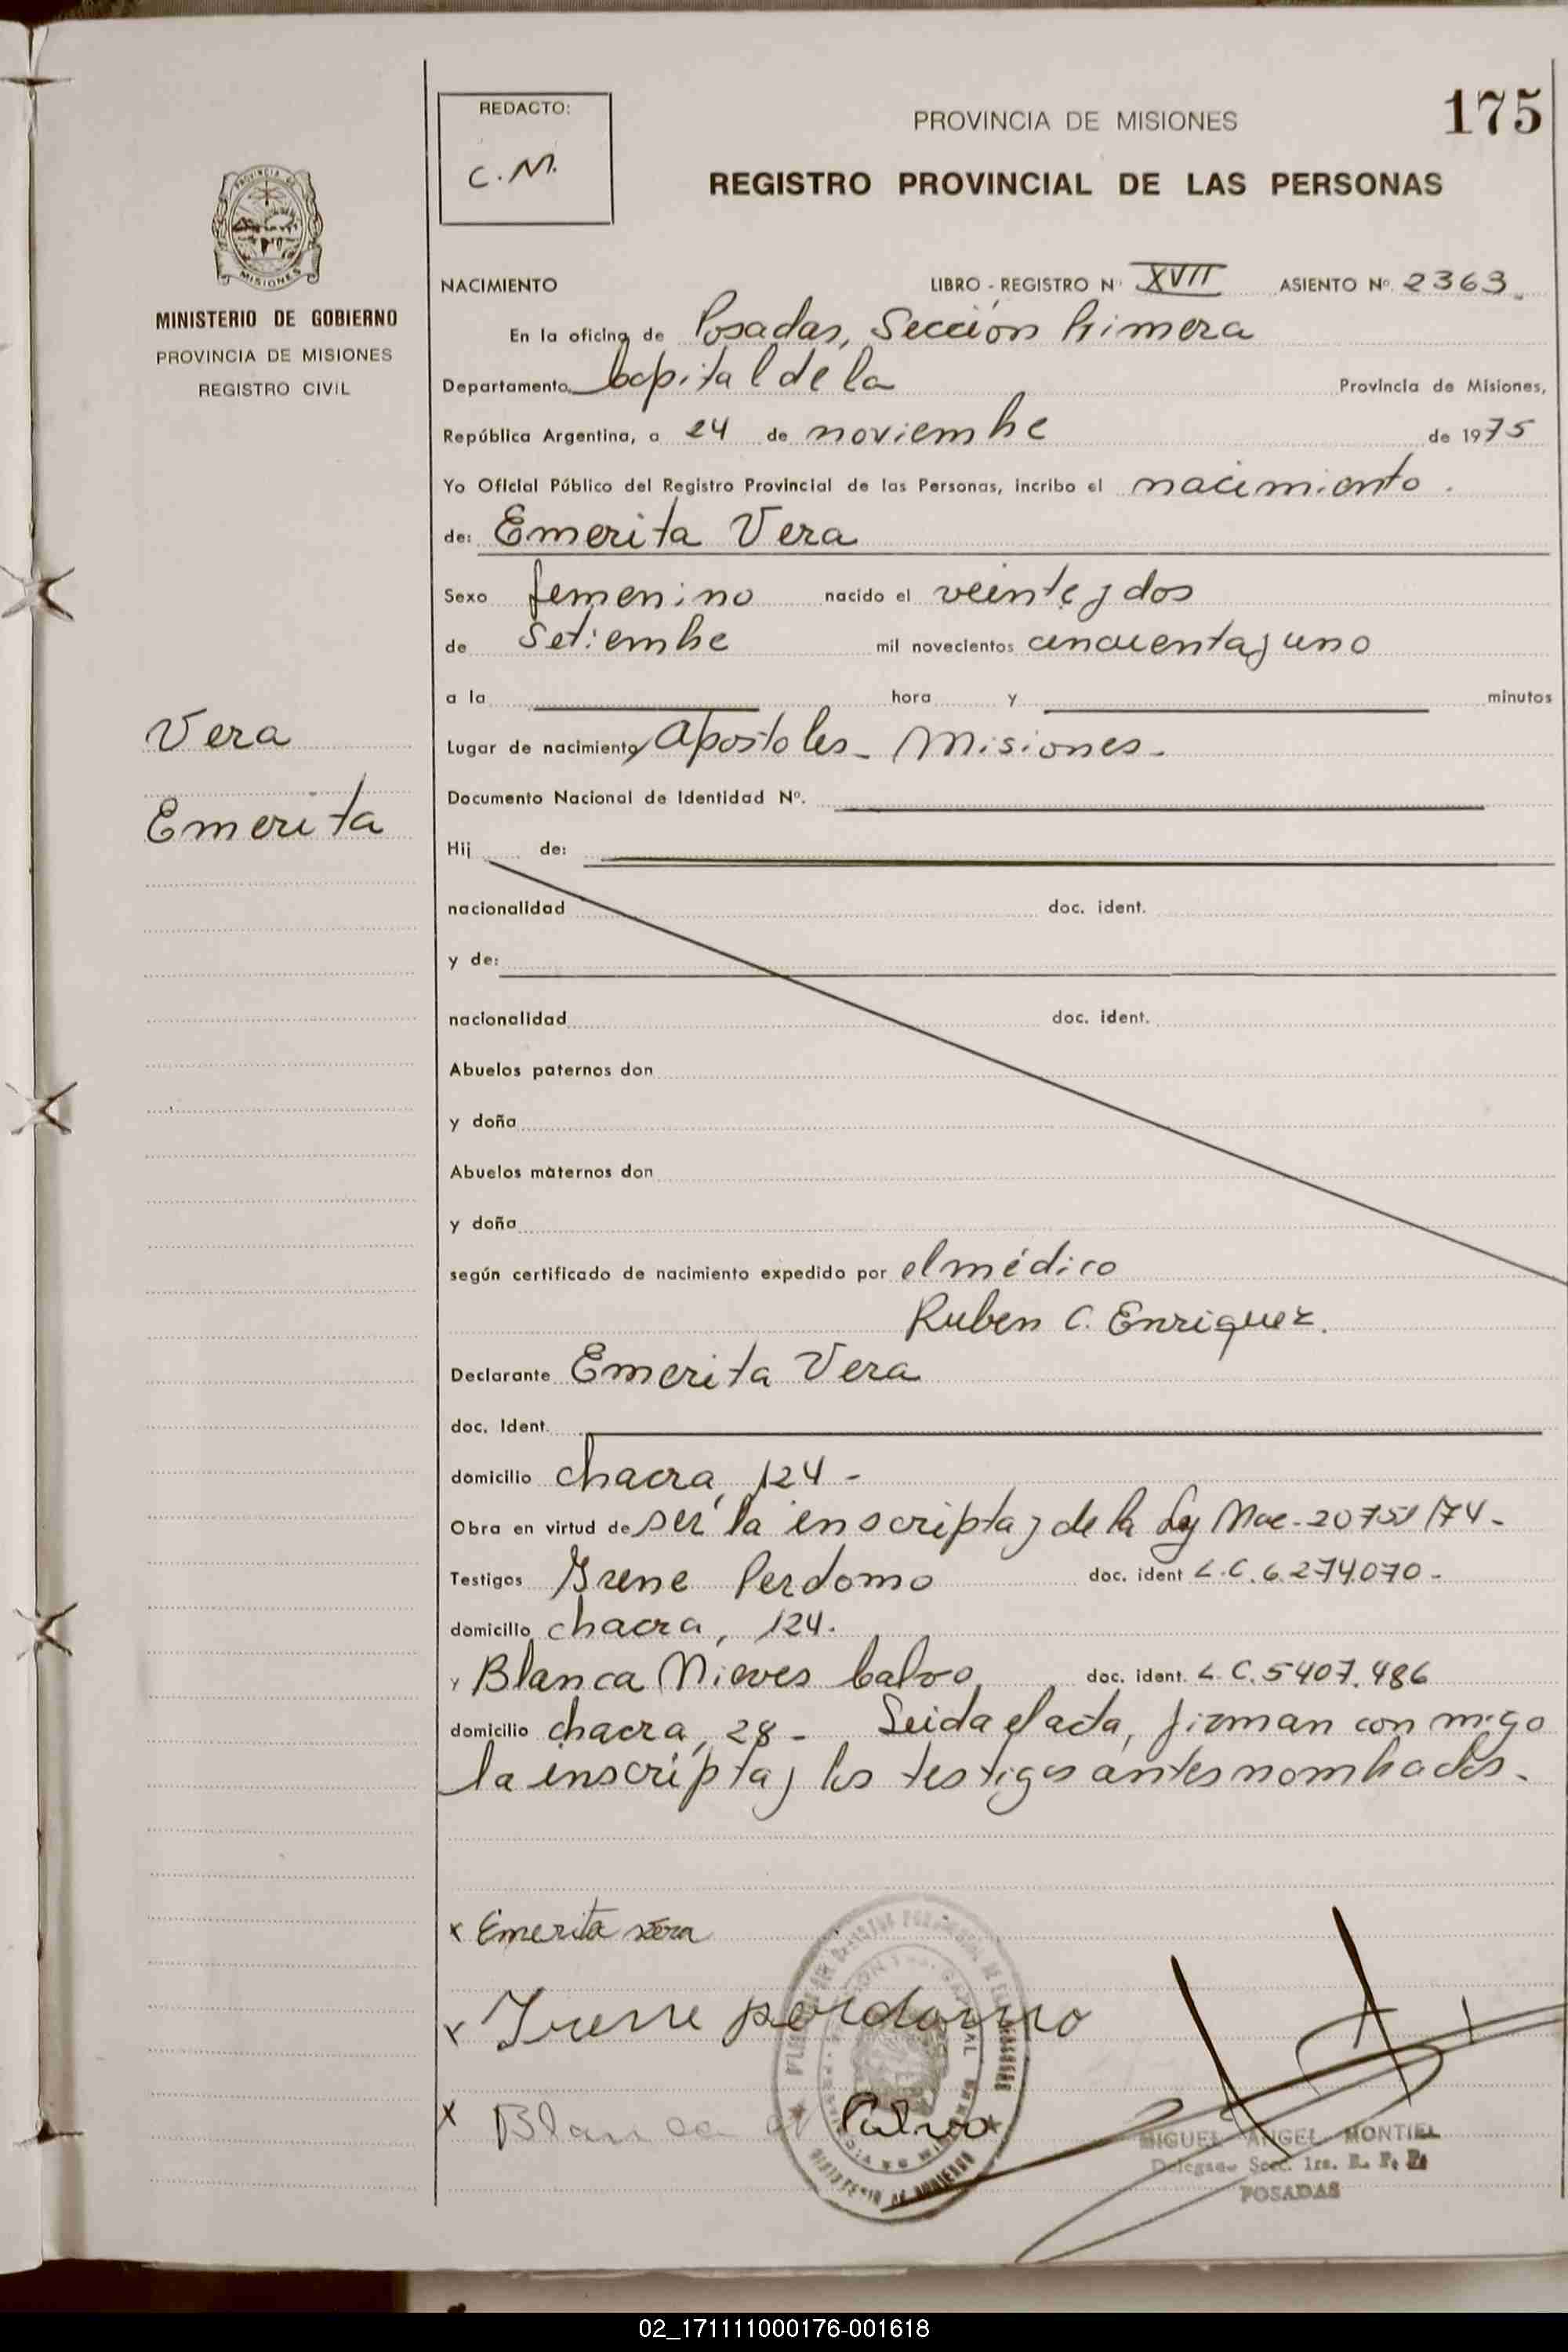 175
REDACTO:
C.M.
PROVINCIA DE MISIONES
REGISTRO PROVINCIAL DE LAS PERSONAS
PROVINCIA DE
MISIONES
MINISTERIO DE GOBIERNO
PROVINCIA DE MISIONES
REGISTRO CIVIL
NACIMIENTO LIBRO - REGISTRO N XVII ASIENTO Nº 2363
En la oficina de Posadas, Sección Primera
Departamento Capital de la Provincia de Misiones,
República Argentina, a 24 de noviembre de 1975
Yo Oficial Público del Registro Provincial de las Personas, incribo el nacimiento.
de: Emerita Vera
Sexo femenino nacido el veinte y dos
de Setiembre mil novecientos cincuenta y uno
a la hora y minutos
Vera
Emerita
Lugar de nacimiento Apostoles - Misiones -
Documento Nacional de Identidad Nº.
Hij de:
nacionalidad doc. ident.
y de:
nacionalidad doc. ident.
Abuelos paternos don
y doña
Abuelos màternos don
y doña
según certificado de nacimiento expedido por el médico
Ruben C. Enriquez.
Declarante Emerita Vera
doc. Ident.
domicilio chacra, 124 -
Obra en virtud de ser la inscripta y de la Ley Nac - 20751/74 -
Testigos Irene Perdomo doc. ident L.C. 6.274.070 -
domicilio chacra, 124.
y Blanca Nieves Calvo doc. ident. L.C. 5407.486
domicilio chacra, 28 - Leida el acta, firman con migo
la inscripta y los testigos antes nombrados -
x Emerita vera
x Irene perdomo
x Blanca Calvo
MIGUEL ANGEL MONTIEL
Secc. 1ra. R. P. P.
POSADAS
02_171111000176-001618